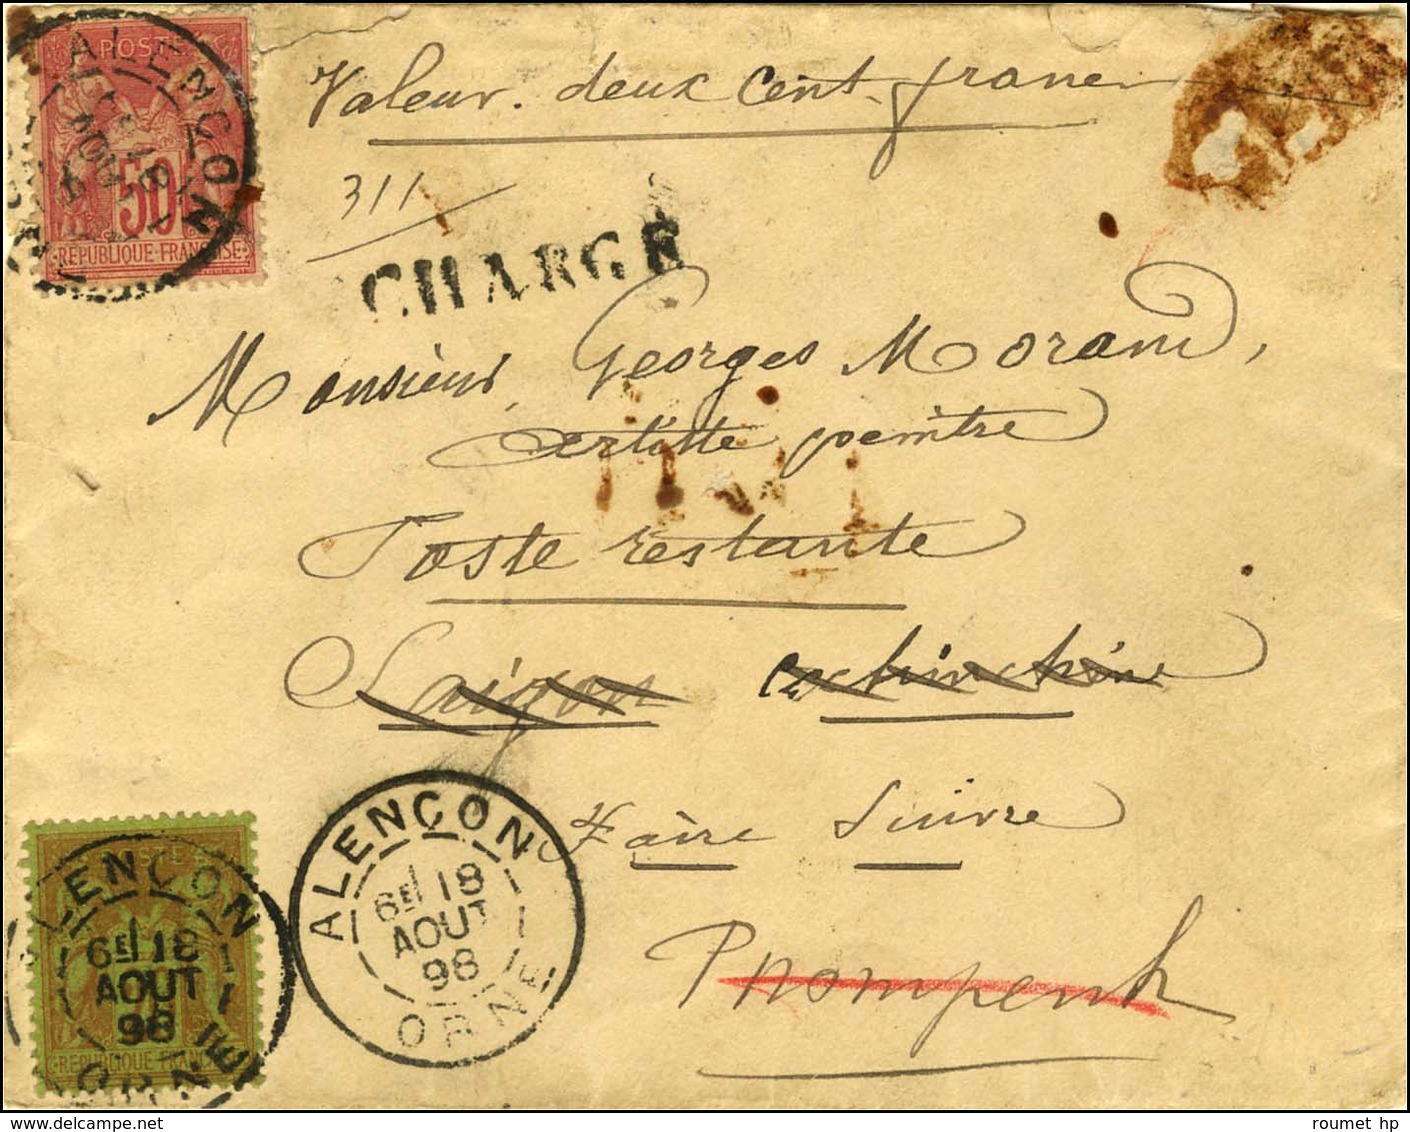 POSTES
50
RÉPUBLIQUE FRANÇAISE
ALENÇON
18
AOUT
Valeur. deux cent. francs
311
CHARGÉ
Monsieur Georges Morand,
artiste peintre
Poste restante
Saigon Cochinchine
Faire Suivre
Pnompenh
ALENÇON
6E 18
AOUT
98
ORNE
ALENÇON
6E 18
AOUT
98
ORNE
RÉPUBLIQUE FRANÇAISE
roumet hp